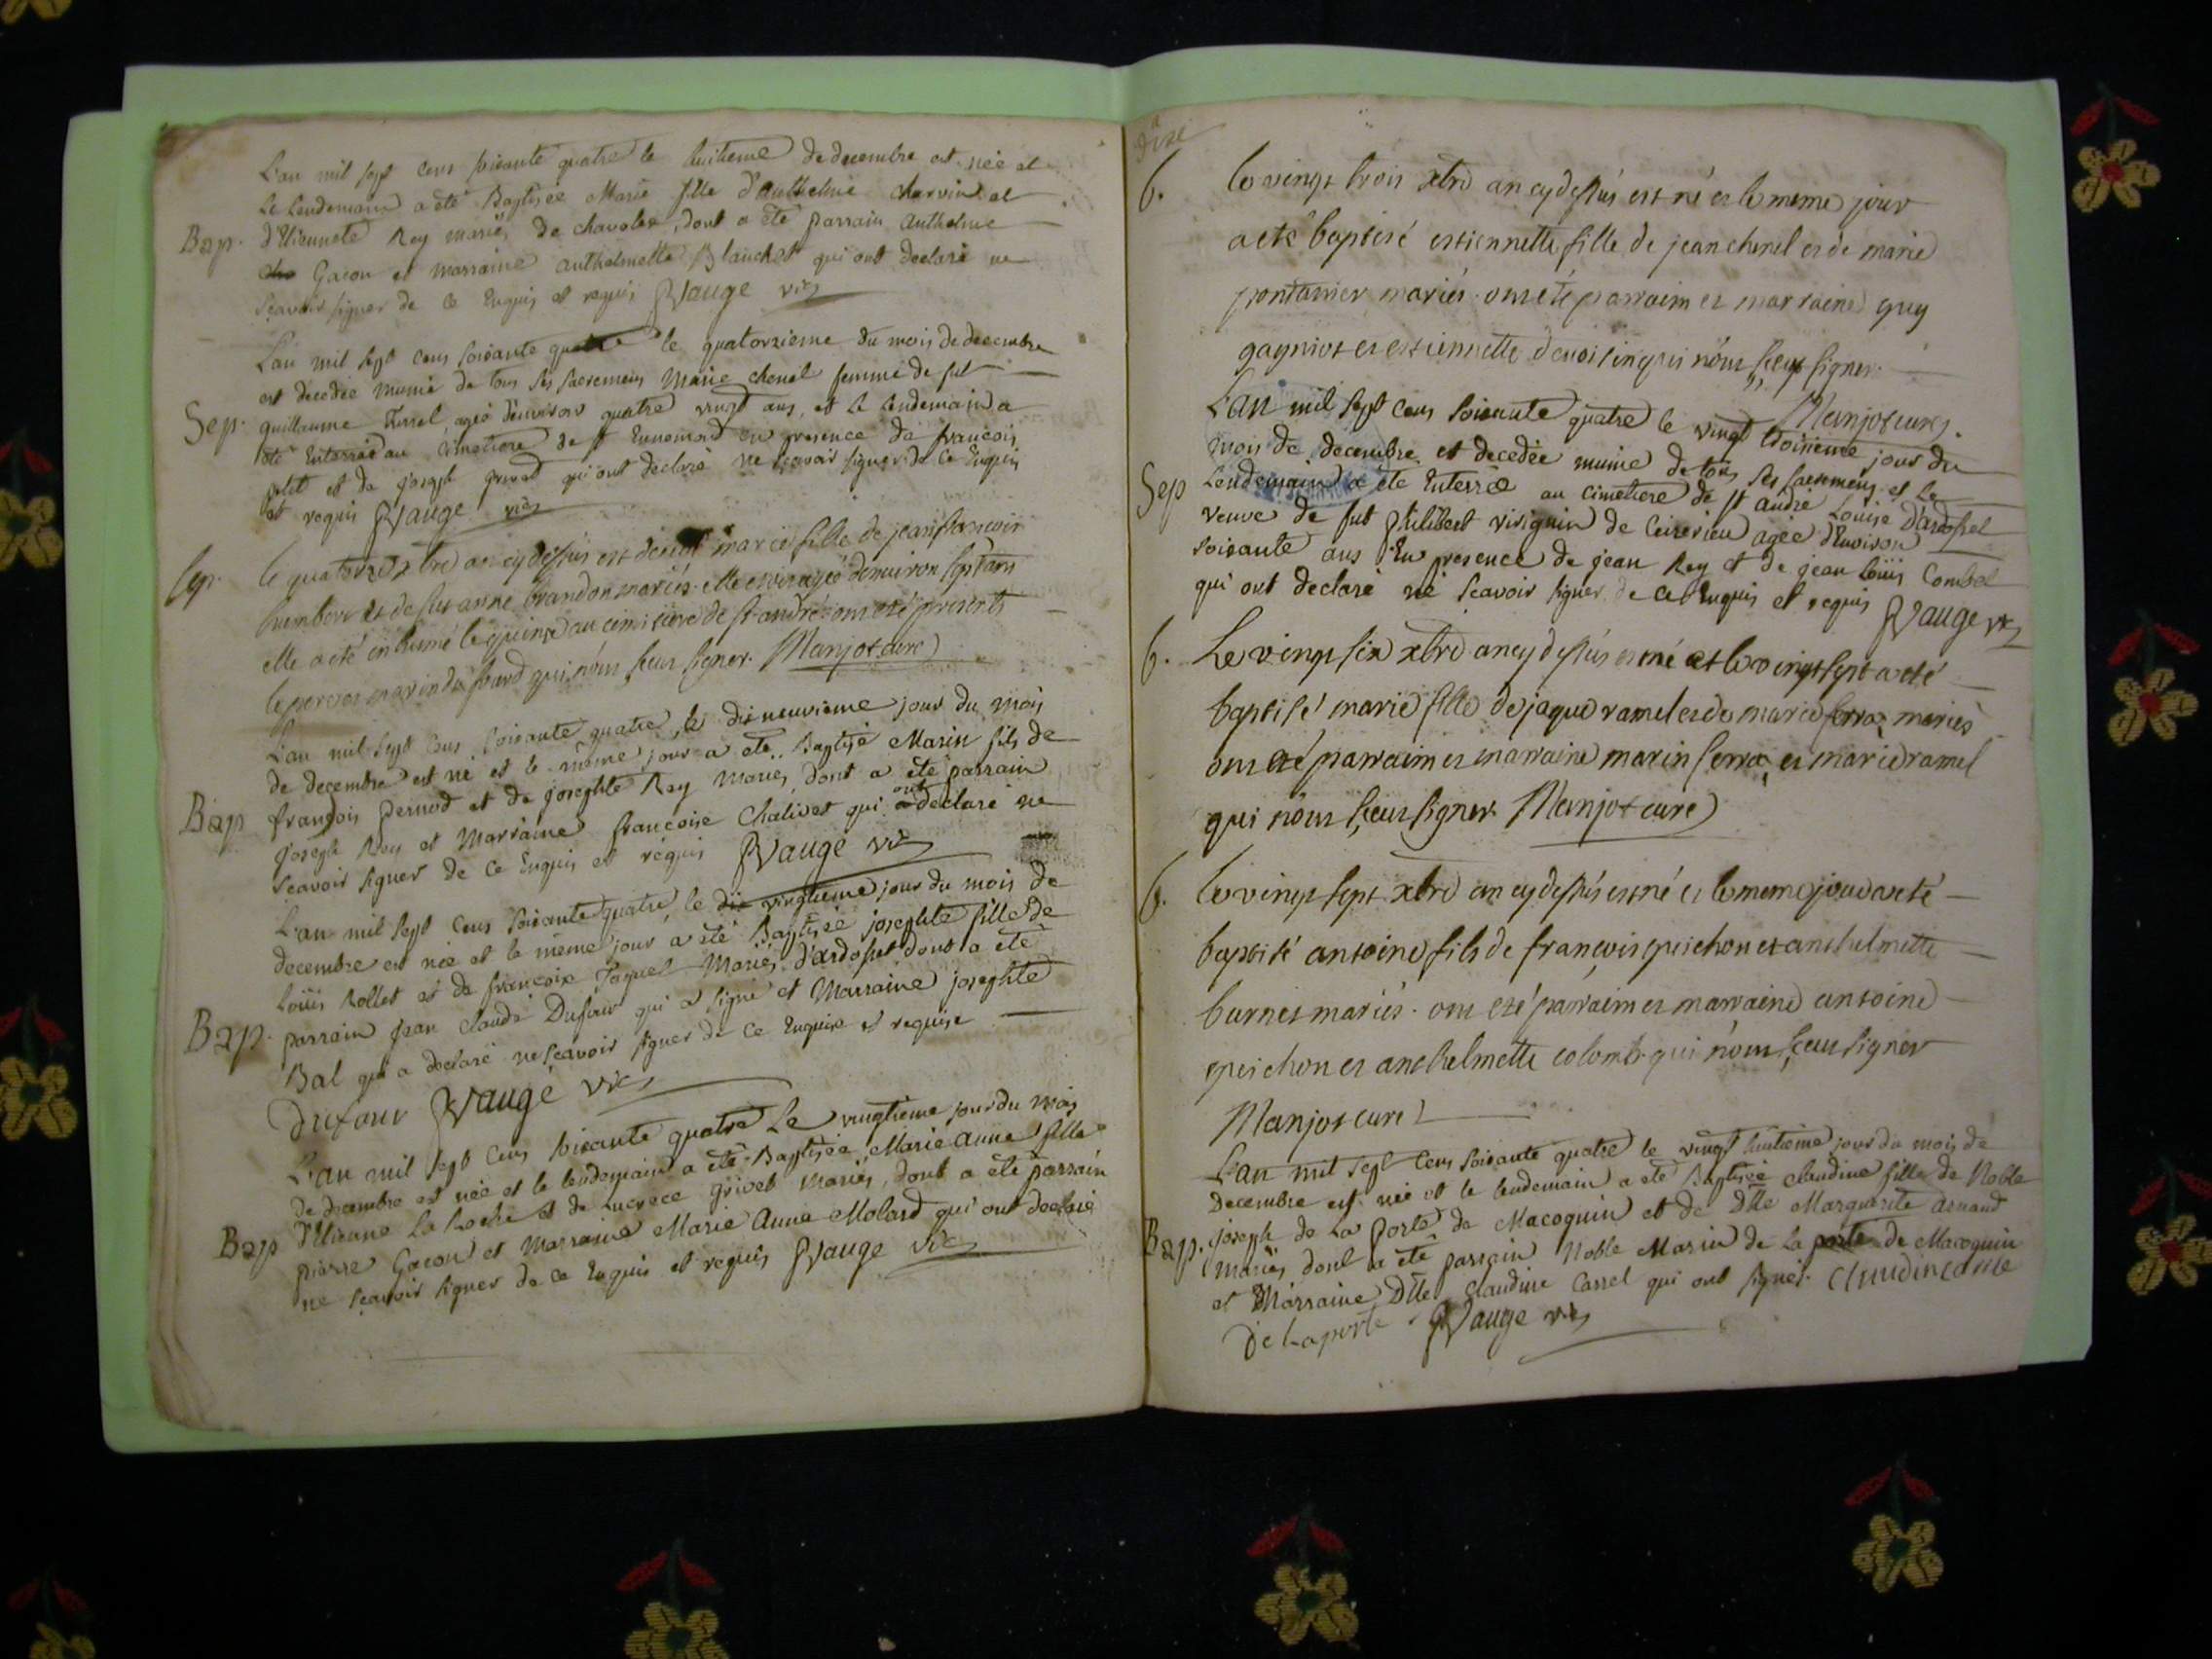 L'an mil sept cens soixante quatre le huitieme de decembre est née et
Le lendemain a été Baptisée Marie fille d'anthelme charvin et
Bap. d'Etiennete Rey mariés de chavolex, dont a été parrain Anthelme
Gacon et marraine anthelmette Blanchet qui ont declaré ne
sçavoir signer de ce Enquis et requis PVauge vic
L'an mil sept cens soixante quatre le quatorzieme du mois de decembre
est decedée munie de tous ses sacremens Marie chenel femme de fut
Sep. guillaume agée d'environ quatre vingt ans, et le lendemain a
été Enterrée au cimetiere de st Ennemond en presence de françois
petit et de joseph qui ont declaré ne sçavoir signer de ce Enquis
et requis PVauge vic
Sep. le quatorze xbre an cy dessus est marie fille de jean francois
humbert et de susanne brandon mariés. elle agée denviron sept ans
elle a eté enhumé le quinze au cimitiere de st andré. ont eté presents
marin qui nont sceu signer. Manjot curé
L'an mil sept cens soixante quatre, le dix neuvieme jour du mois
de decembre est né et le même jour a été Baptisé Marin fils de
Bap françois pernod et de josephte Rey mariés, dont a été parrain
joseph Rey et Marraine françoise Chalivet qui ont declaré ne
sçavoir signer de ce Enquis et requis PVauge vic
L'an mil sept cens soixante quatre, le dix vingtieme jour du mois de
decembre est née et le même jour a été Baptisée josephte fille de
Louis Rollet et de françoise Mariés d'ardosset dont a été
Bap. parrain jean claude Dufour qui a signé et Marraine josephte
Bal qui a declaré ne sçavoir signer de ce Enquise et requise
Dufour PVauge vic
L'an mil sept cens soixante quatre Le vingtieme jour du mois
de decembre est née et le lendemain a été Baptisée Marie anne fille
Bap d'Etienne La Roche et de Lucrece grivet Mariés, dont a été parrain
pierre Gacon et Marraine Marie Anne Molard qui ont declaré
ne sçavoir signer de ce Enquis et requis PVauge vic
6. le vingt trois xbre an cy dessus est né et le meme jour
a eté baptisé estiennette fille de jean chenel et de marie
pontannier mariés. ont été parraim et marraine guy
gagniot et estiennette devoisin qui n'ont sceu signer.
Manjot curé.
L'an mil sept cens soixante quatre le vingt troisieme jour du
mois de decembre est decedée munie de tous ses sacremens et Le
Sep Lendemain a été Enterrée au cimetiere de st andré Louise D'ardosset
veuve de fut philibert virignin de Ceizerieu agée d'Environ
soixante ans En presence de jean Rey et de jean Louis Combet
qui ont declaré ne sçavoir signer de ce Enquis et requis PVauge vic
6. Le vingt six xbre an cy dessus est né et le vingt sept a eté
baptisé marie fille de jaque ramel et de marie serra mariés
ont eté parraim et marraine marin serra et marie ramel
qui n'ont sceu signer. Manjot curé
6. le vingt sept xbre an cy dessus est né et le meme jour a eté
baptisé antoine fils de françois peichon et anthelmette
burnet mariés. ont eté parraim et marraine antoine
peichon et anthelmette colomb. qui n'ont sceu signer
Manjot curé
L'an mil sept cens soixante quatre le vingt huitieme jour du mois de
Decembre est née et le lendemain a été Baptisée claudine fille de Noble
Bap. joseph de La Porte de Macoquin et de Dlle Marguerite Arnaud
mariés dont a été parrain Noble Marin de La porte de Macoquin
et Marraine Dlle Claudine Carrel qui ont signés. Claudin
De Laporte PVauge vic